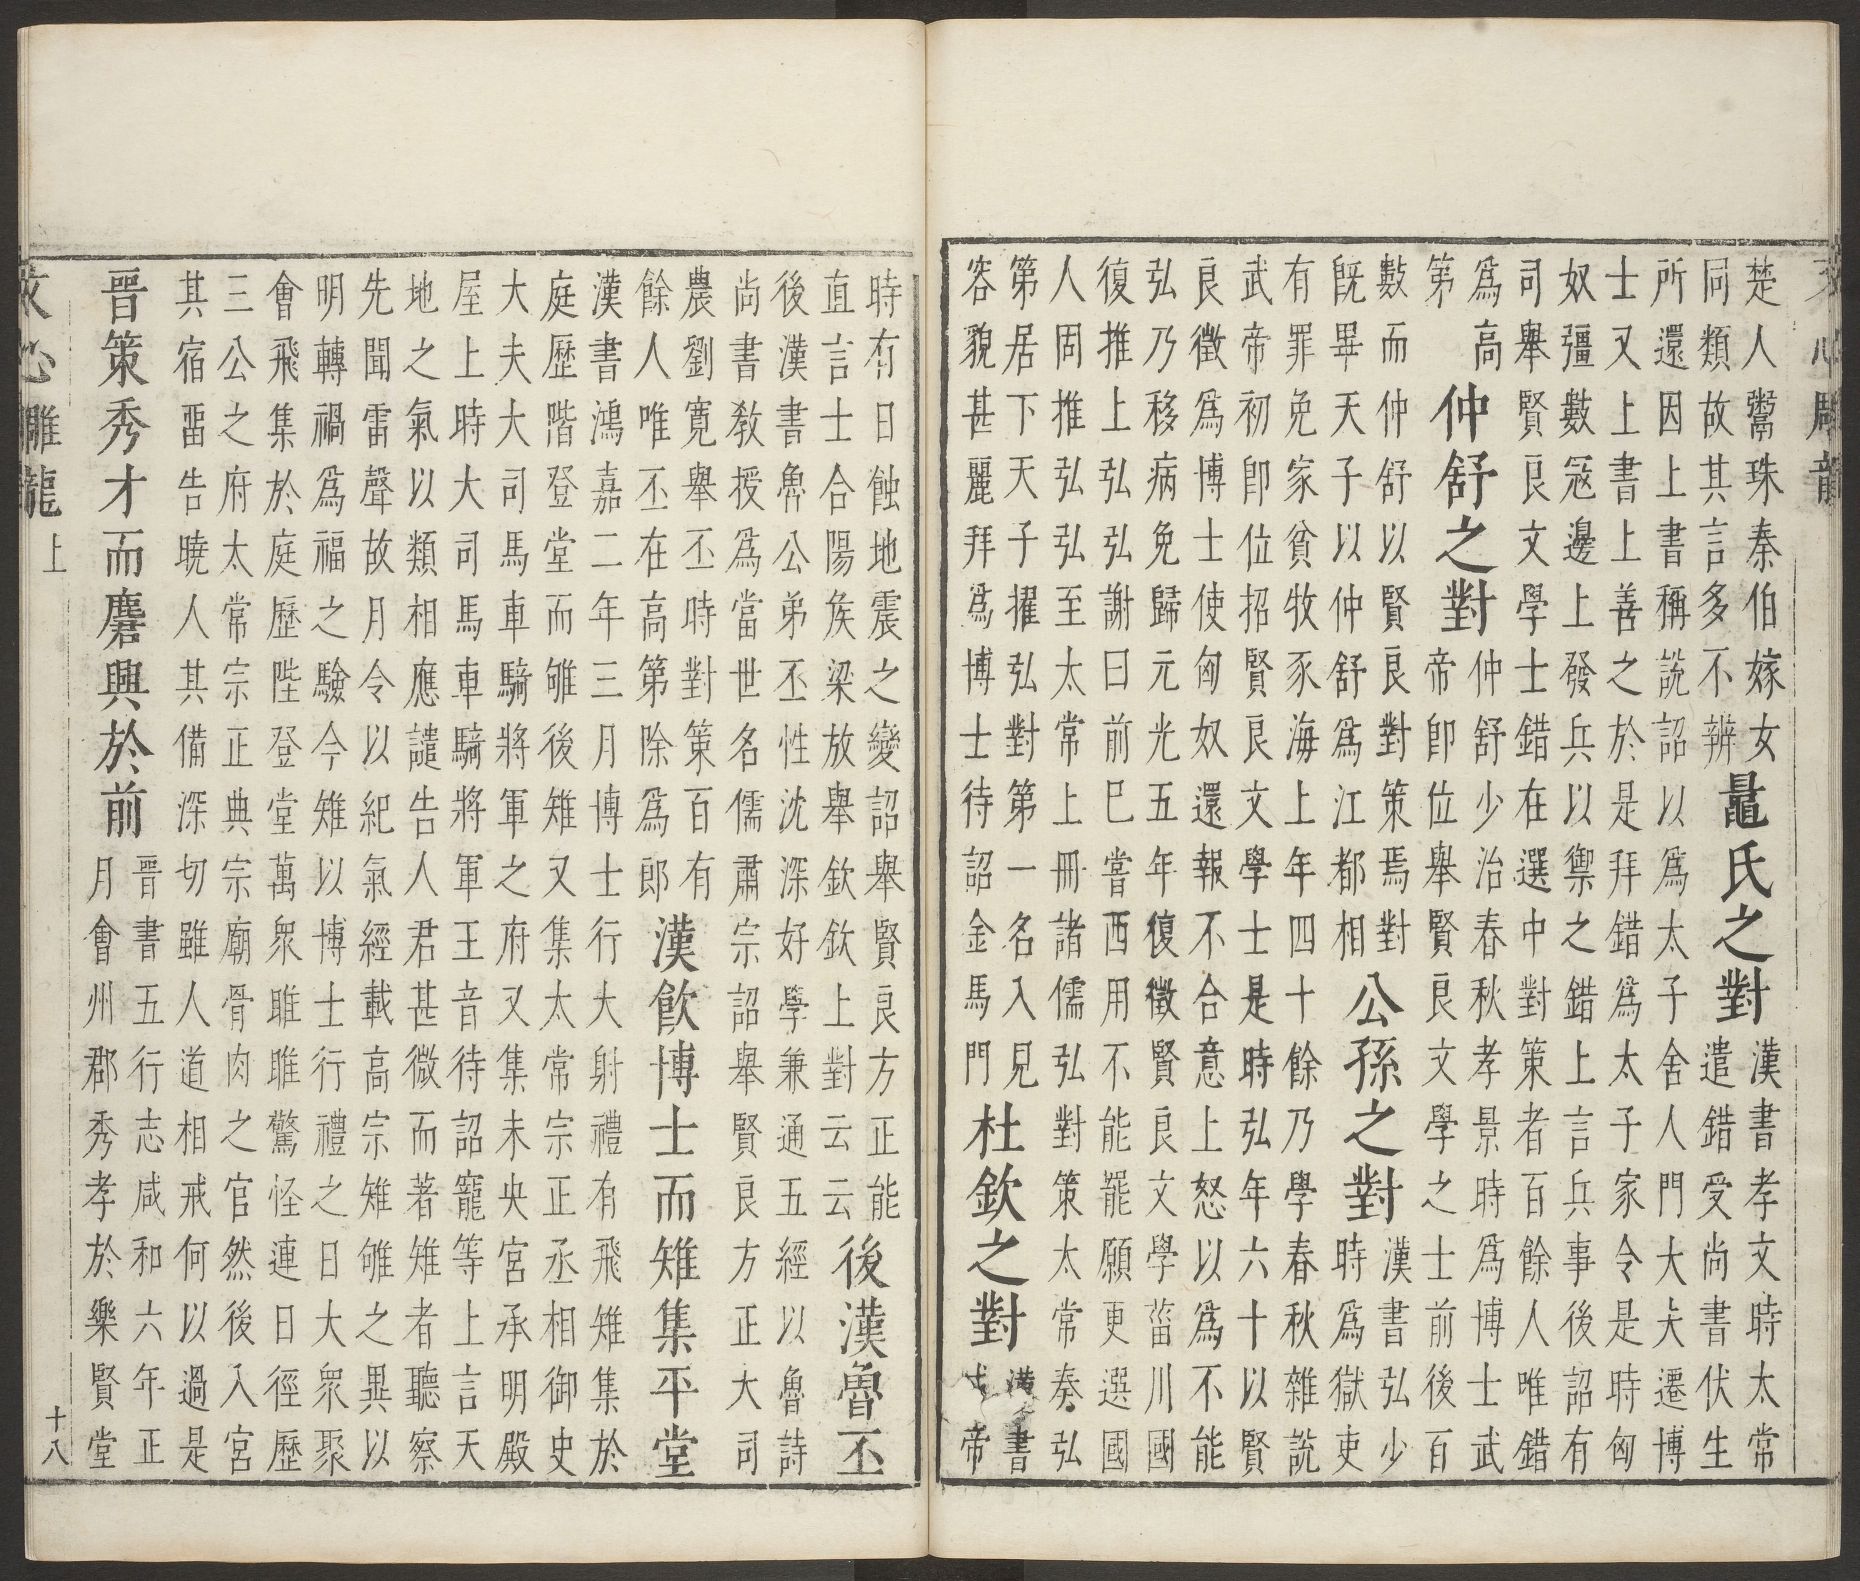 文心雕龍
楚人鬻珠秦伯嫁女
同類故其言多不辨
鼂氏之對
漢書孝文時太常
遣錯受尚書伏生
所還因上書稱說詔以爲太子舍人門大夫遷博
士又上書上善之於是拜錯爲太子家令是時匈
奴彊數寇邊上發兵以禦之錯上言兵事後詔有
司舉賢良文學士錯在選中對策者百餘人唯錯
爲高
第
仲舒之對
仲舒少治春秋孝景時爲博士武
帝卽位舉賢良文學之士前後百
數而仲舒以賢良對策焉對
旣畢天子以仲舒爲江都相
公孫之對
漢書弘少
時爲獄吏
有罪免家貧牧豕海上年四十餘乃學春秋雜說
武帝初卽位招賢良文學士是時弘年六十以賢
良徵爲博士使匈奴還報不合意上怒以爲不能
弘乃移病免歸元光五年復徵賢良文學菑川國
復推上弘弘謝曰前巳嘗西用不能罷願更選國
人固推弘弘至太常上冊諸儒弘對策太常奏弘
第居下天子擢弘對第一名入見
容貌甚麗拜爲博士待詔金馬門
杜欽之對
漢書
帝
時有日蝕地震之變詔舉賢良方正能
直言士合陽侯梁放舉欽欽上對云云
後漢魯丕
後漢書魯公弟丕性沈深好學兼通五經以魯詩
尚書教授爲當世名儒肅宗詔舉賢良方正大司
農劉寬舉丕時對策百有
餘人唯丕在高第除爲郎
漢飲博士而雉集平堂
漢書鴻嘉二年三月博士行大射禮有飛雉集於
庭歷階登堂而雊後雉又集太常宗正丞相御史
大夫大司馬車騎將軍之府又集未央宮承明殿
屋上時大司馬車騎將軍王音待詔寵等上言天
地之氣以類相應譴告人君甚微而著雉者聽察
先聞雷聲故月令以紀氣經載高宗雉雊之異以
明轉禍爲福之驗今雉以博士行禮之日大衆聚
會飛集於庭歷陛登堂萬衆睢睢驚怪連日徑歷
三公之府太常宗正典宗廟骨肉之官然後入宮
其宿畱告曉人其備深切雖人道相戒何以過是
晉策秀才而麏興於前
晉書五行志咸和六年正
月會州郡秀孝於樂賢堂
文心雕龍 上 十八